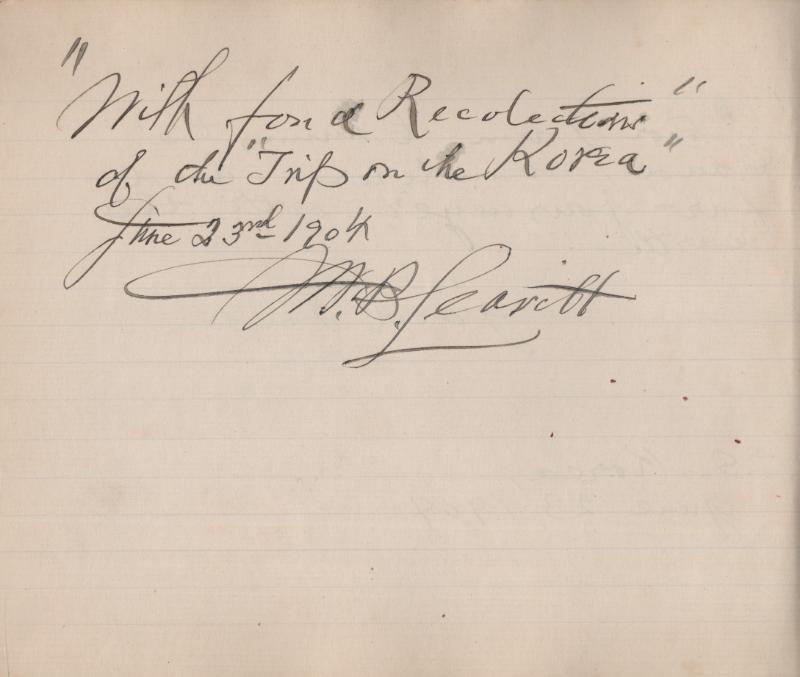 "With fond Recolections"
of the "Trip on the Korea"
June 23rd 1904
M. B. Leavitt